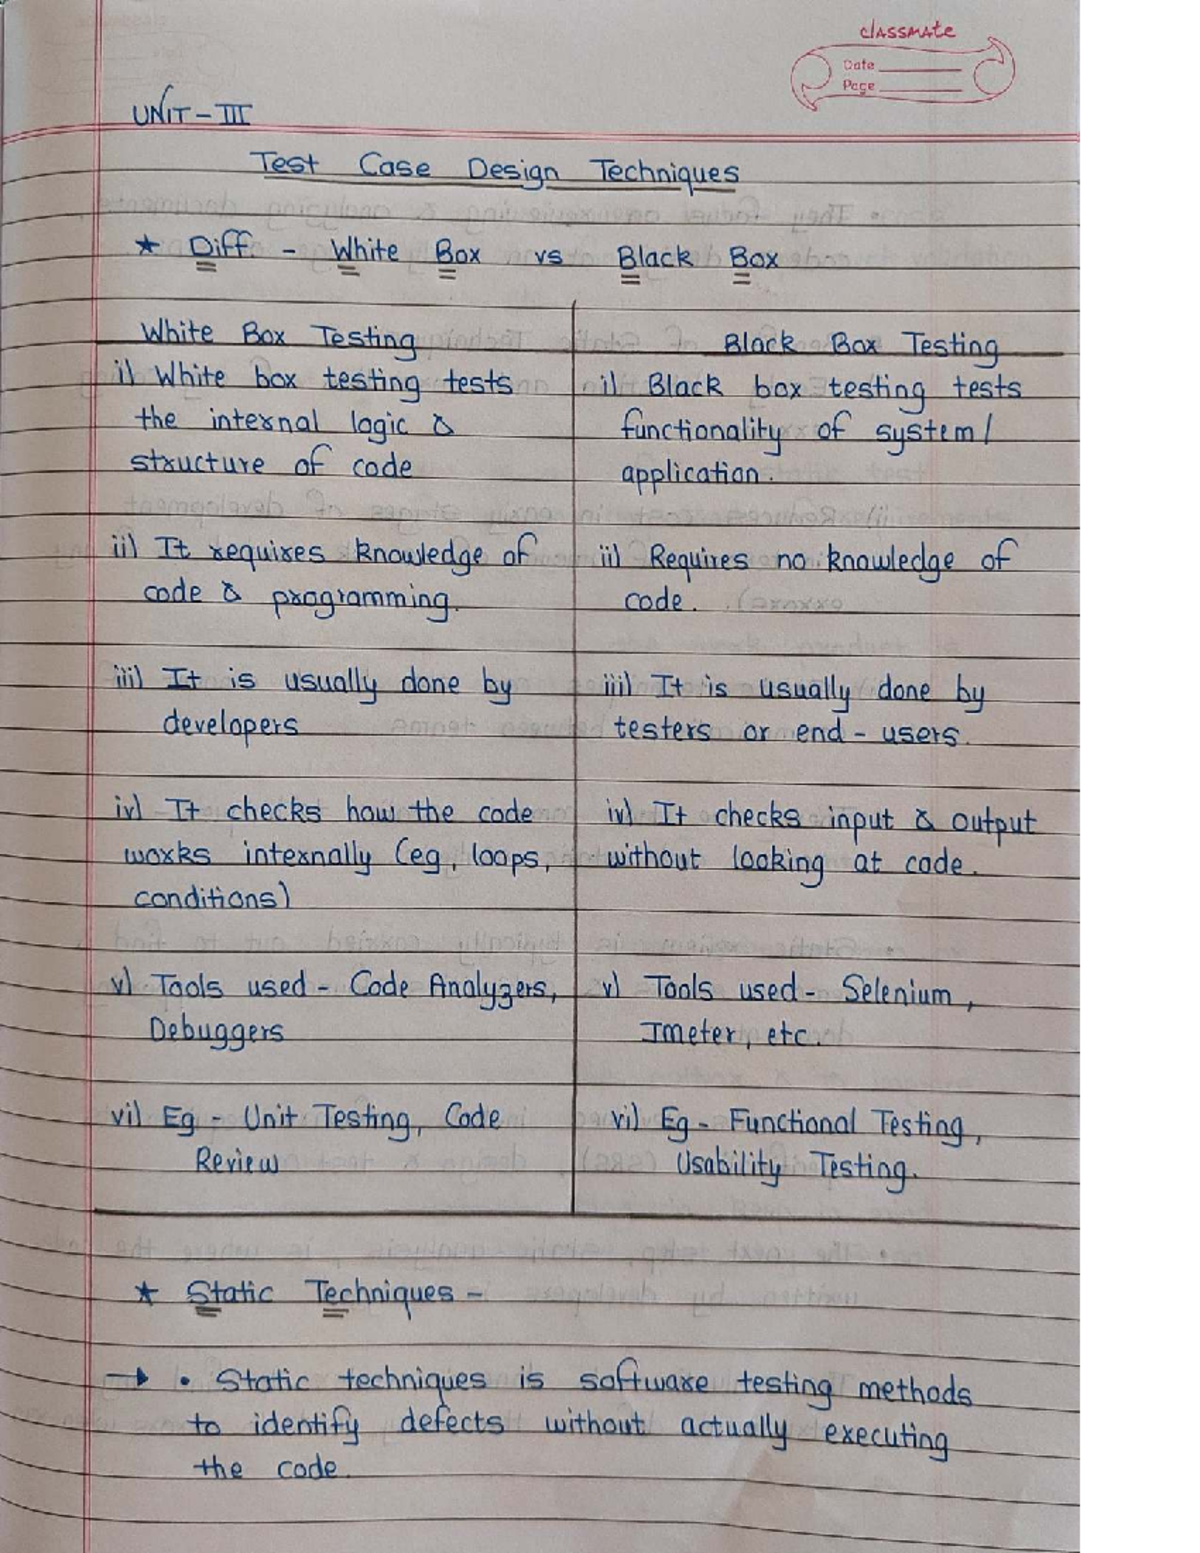 classmate
Date
Page
UNIT - III
Test Case Design Techniques
★ Diff - White Box vs Black Box
White Box Testing
i) White box testing tests
the internal logic &
structure of code
ii) It requires knowledge of
code & programming.
iii) It is usually done by
developers
iv) It checks how the code
works internally (eg, loops,
conditions)
v) Tools used - Code Analyzers,
Debuggers
vi) Eg - Unit Testing, Code
Review
Black Box Testing
i) Black box testing tests
functionality of system/
application.
ii) Requires no knowledge of
code.
iii) It is usually done by
testers or end - users.
iv) It checks input & output
without looking at code.
v) Tools used - Selenium,
Jmeter, etc.
vi) Eg - Functional Testing,
Usability Testing.
★ Static Techniques -
→ • Static techniques is software testing methods
to identify defects without actually executing
the code.